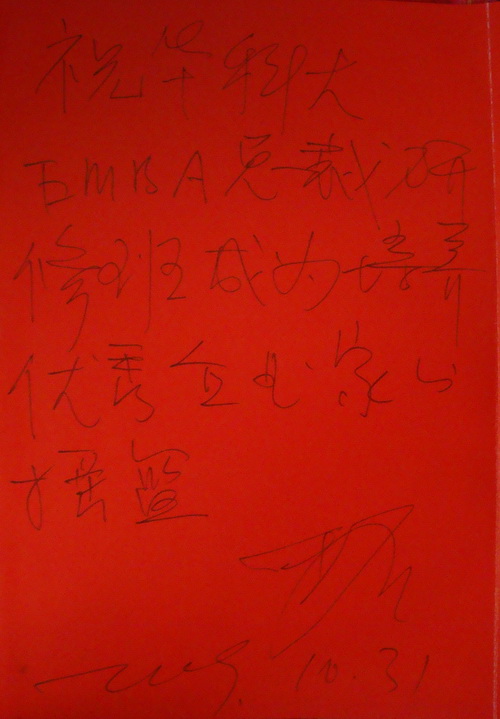 祝华科大
EMBA总裁研
修班成为培养
优秀企业家的
摇篮
10.31